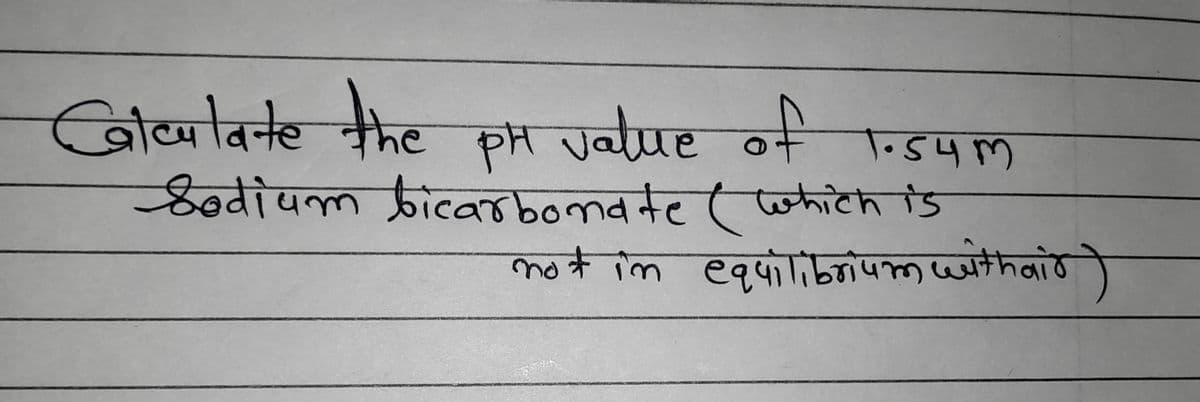 Calculate the pH value of 1.54M
Sodium bicarbonate (which is
not in equilibrium with air)